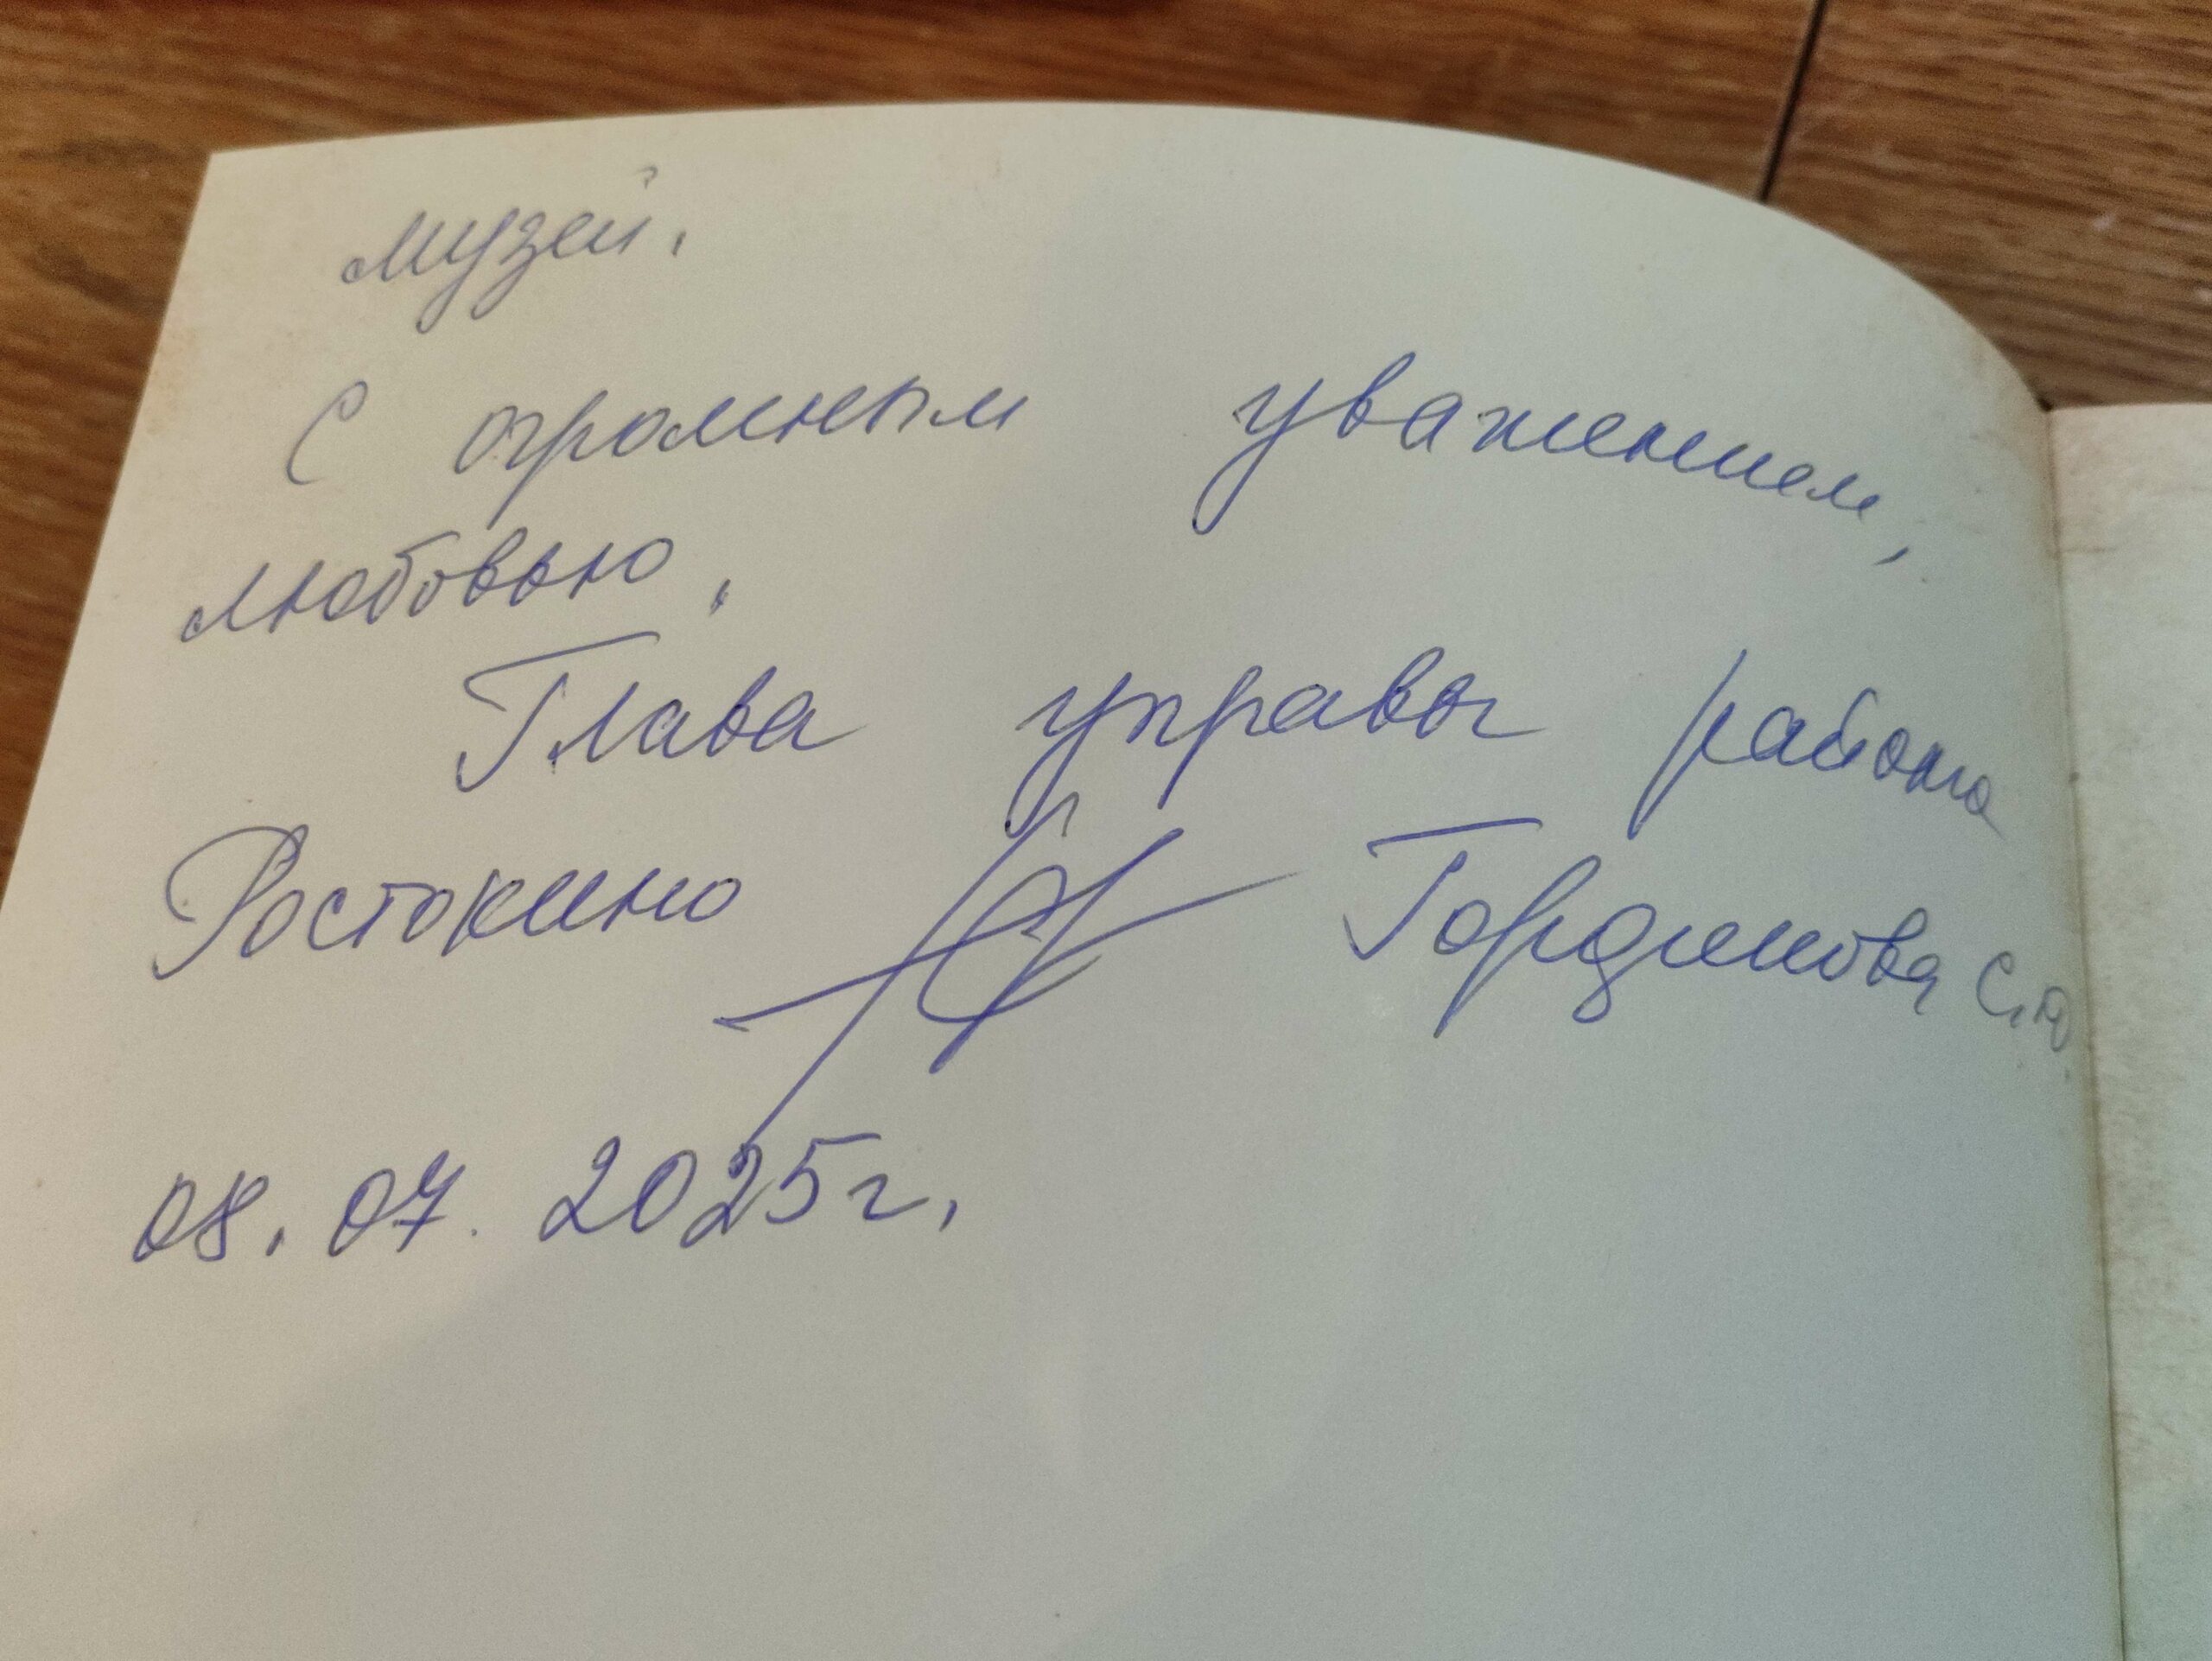 музей.
С огромным уважением,
любовью,
Глава управы района
Ростокино Гордикова С.Ю.
08.07.2025г.